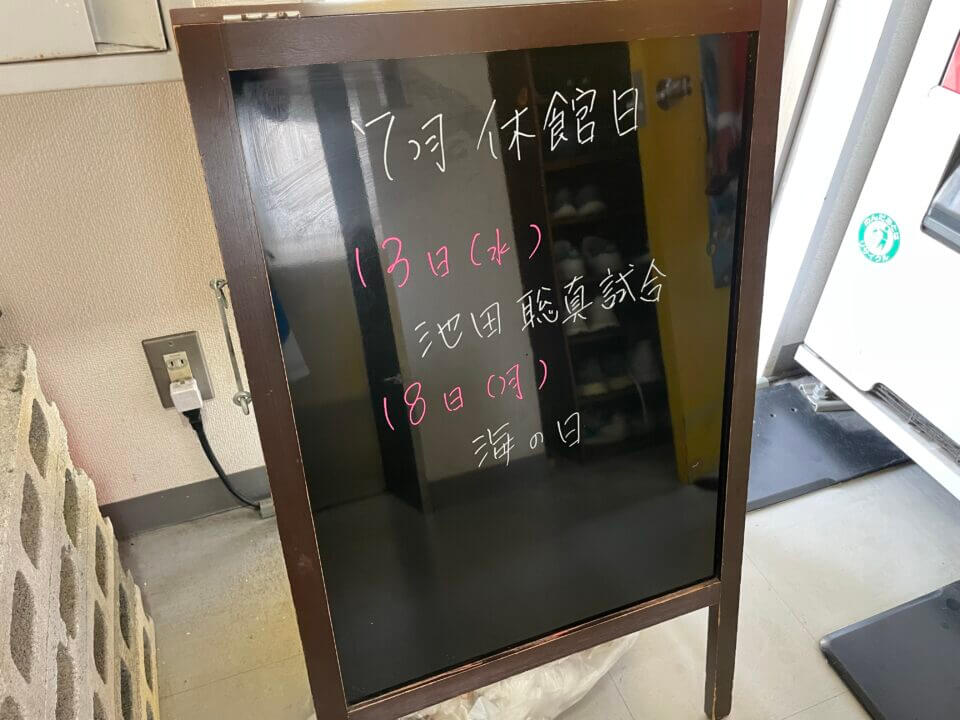 7月休館日
13日(水)
池田聡真試合
18日(月)
海の日